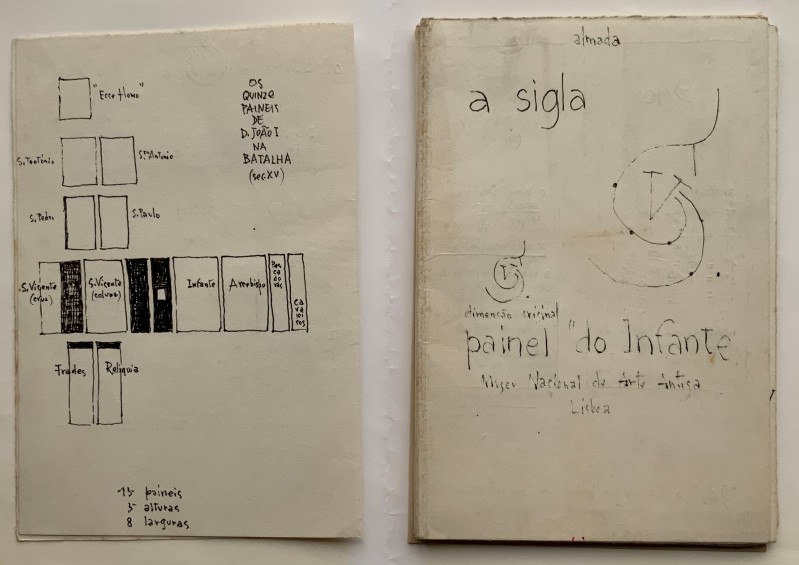 "Ecce Homo"
OS
QUINZE
PAINEIS
DE
D. JOÃO I
NA
BATALHA
(sec. XV)
S. Teotónio
Stº Antonio
S. Pedro
S. Paulo
S. Vicente
(cruz)
S. Vicente
(coluna)
Infante
Arcebispo
Pes
ca
do
res
ca
va
lei
ros
Frades
Relíquia
15 paineis
5 alturas
8 larguras
almada
a sigla
dimensão original
painel "do Infante"
Museu Nacional de Arte Antiga
Lisboa